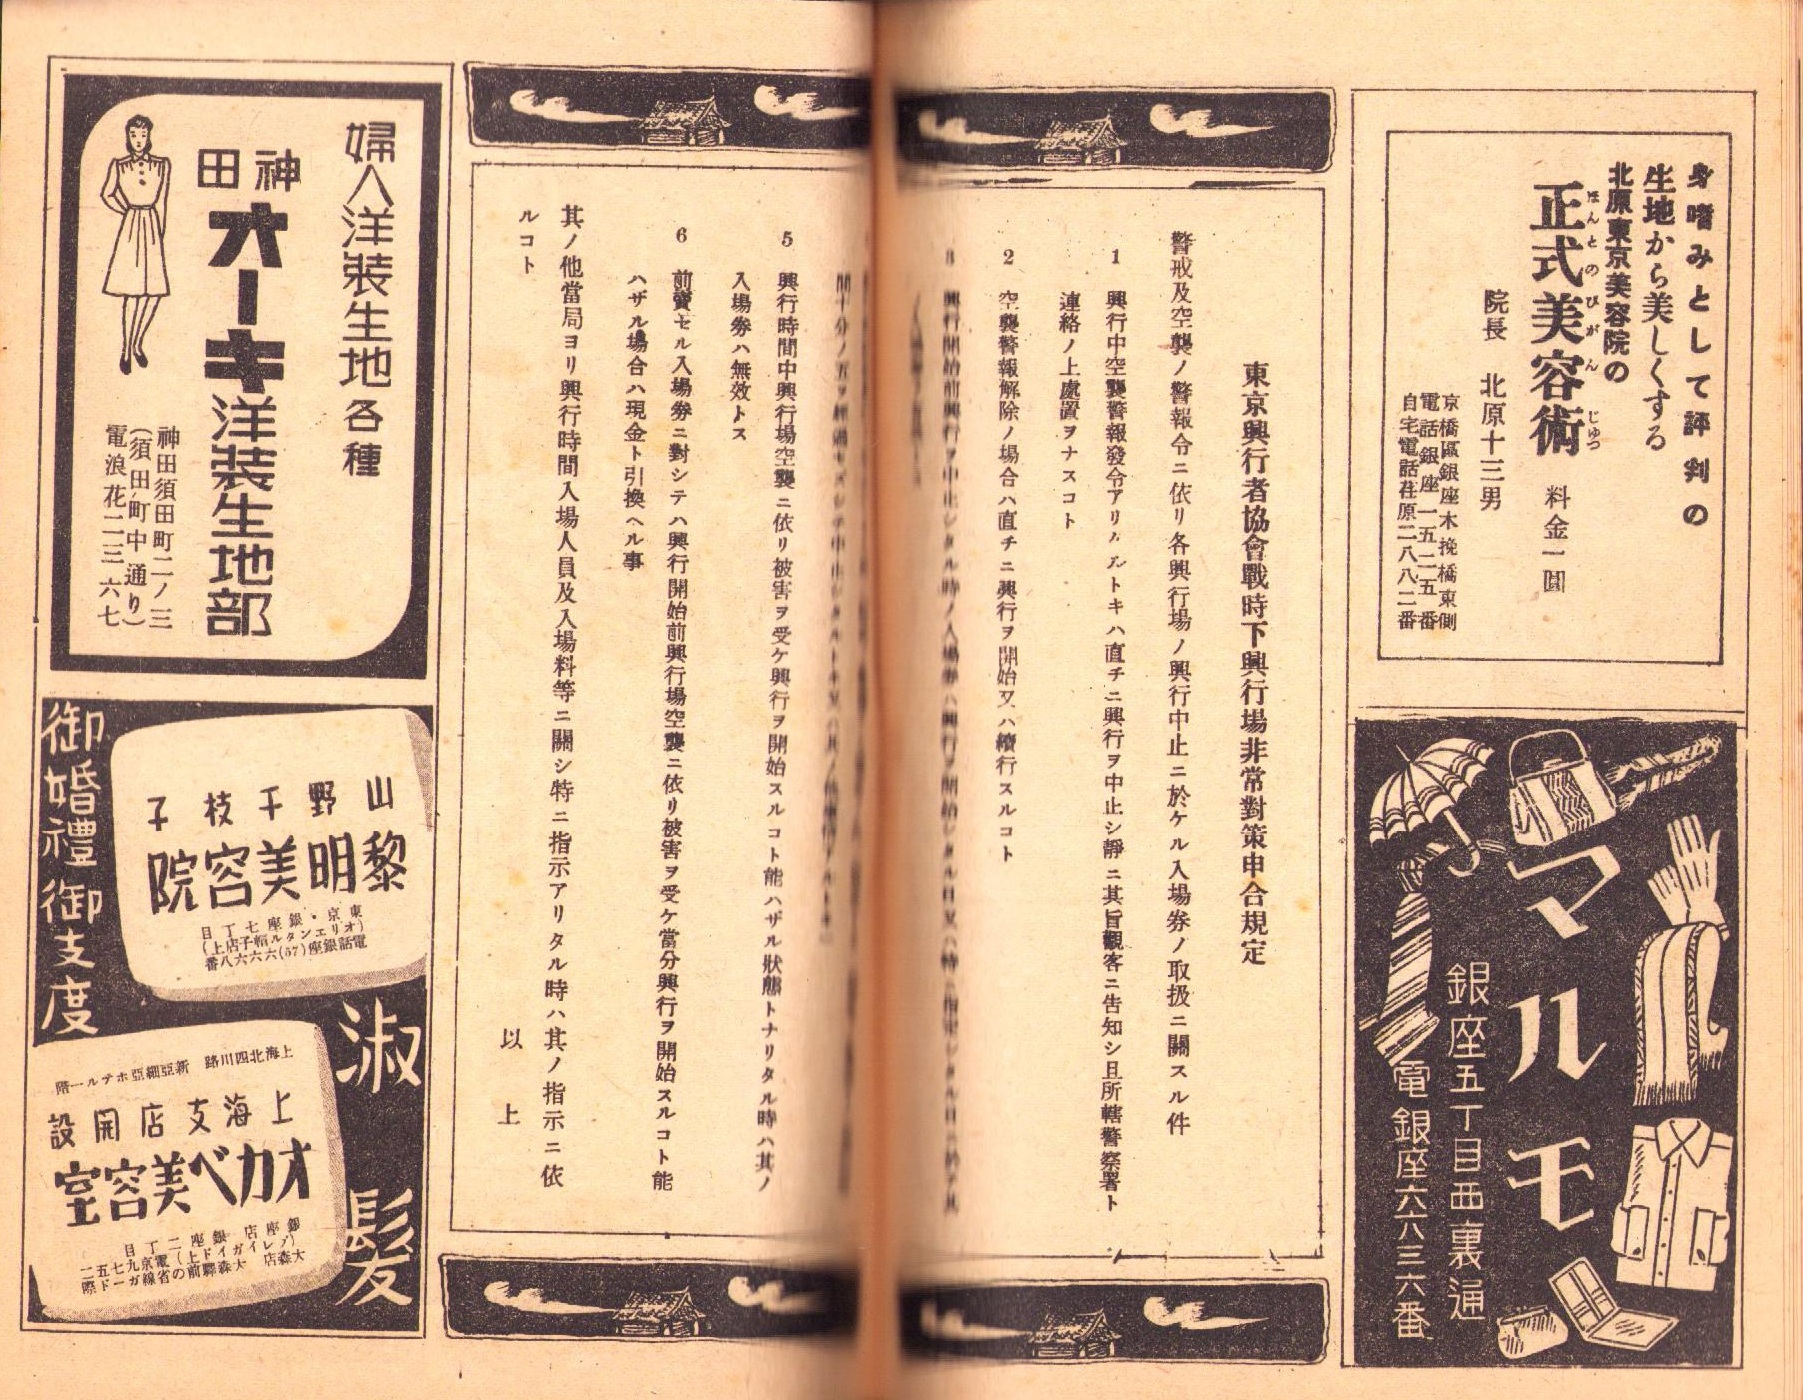 身嗜みとして評判の
生地から美しくする
北原東京美容院の
正式美容術 料金一圓
ほんとのびがんじゆつ
院長 北原十三男
京橋區銀座木挽橋東側
電話銀座一五二五番
自宅電話荏原二八八二番
マルモ
銀座五丁目西裏通
電銀座六六八三六番
東京興行者協會戰時下興行場非常對策申合規定
警戒及空襲ノ警報令ニ依リ各興行場ノ興行中止ニ於ケル入場券ノ取扱ニ關スル件
1 興行中空襲警報發令アリタルトキハ直チニ興行ヲ中止シ靜ニ其旨觀客ニ告知シ且所轄警察署ト
連絡ノ上處置ヲナスコト
2 空襲警報解除ノ場合ハ直チニ興行ヲ開始又ハ續行スルコト
3 興行開始前興行ヲ中止シタル時ノ入場券ハ興行ヲ開始シタル日又ハ特ニ指定シタル日ニ於テ其
5 興行時間中興行場空襲ニ依リ被害ヲ受ケ興行ヲ開始スルコト能ハザル狀態トナリタル時ハ其ノ
入場券ハ無效トス
6 前賣セル入場券ニ對シテハ興行開始前興行場空襲ニ依リ被害ヲ受ケ當分興行ヲ開始スルコト能
ハザル場合ハ現金ト引換ヘル事
其ノ他當局ヨリ興行時間入場人員及入場料等ニ關シ特ニ指示アリタル時ハ其ノ指示ニ依
ルコト
以上
婦人洋裝生地各種
神田
オーキ洋裝生地部
神田須田町二ノ三
(須田町中通り)
電浪花二三六七
淑髮
山野千枝子
黎明美容院
東京・銀座七丁目
(オリエンタル帽子店上)
電話銀座(57)六六六八番
御婚禮御支度
上海北四川路 新亞細亞ホテル一階
上海支店開設
オカベ美容室
銀座店 銀座二丁目
(プレイガイド上)電京九七五二
大森店 大森驛前の省線ガード際